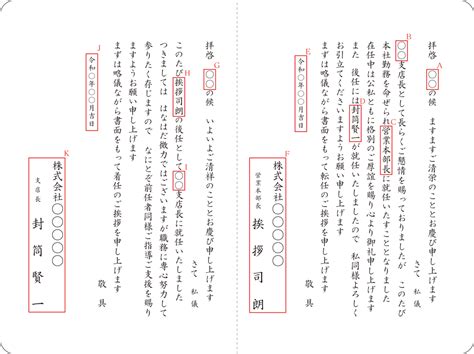 A
拝啓 〇〇の候 ますますご清祥のこととお慶び申し上げます
さて 私儀
B
〇〇支店長として長らくご懇情を賜っておりましたが このたび
C
本社勤務を命ぜられ営業本部長に就任いたすこととなりました
在任中は公私ともに格別のご厚誼を賜り心より御礼申し上げます
D
また 後任には封筒賢一が就任いたしましたので 私同様よろしく
お引立てくださいますようお願い申し上げます
まずは略儀ながら書面をもって転任のご挨拶を申し上げます
敬具
E
令和〇年〇〇月吉日
F
株式会社〇〇〇〇〇
営業本部長 挨拶司朗
G
拝啓 〇〇の候 いよいよご清祥のこととお慶び申し上げます
さて 私儀
H
I
このたび挨拶司朗の後任として〇〇支店長に就任いたしました
つきましては はなはだ微力ではございますが職務に専心努力して
参りたく存じますので なにとぞ前任者同様ご指導ご支援を賜り
ますようお願い申し上げます
まずは略儀ながら書面をもって着任のご挨拶を申し上げます
敬具
J
令和〇年〇〇月吉日
K
株式会社〇〇〇〇〇
支店長 封筒賢一